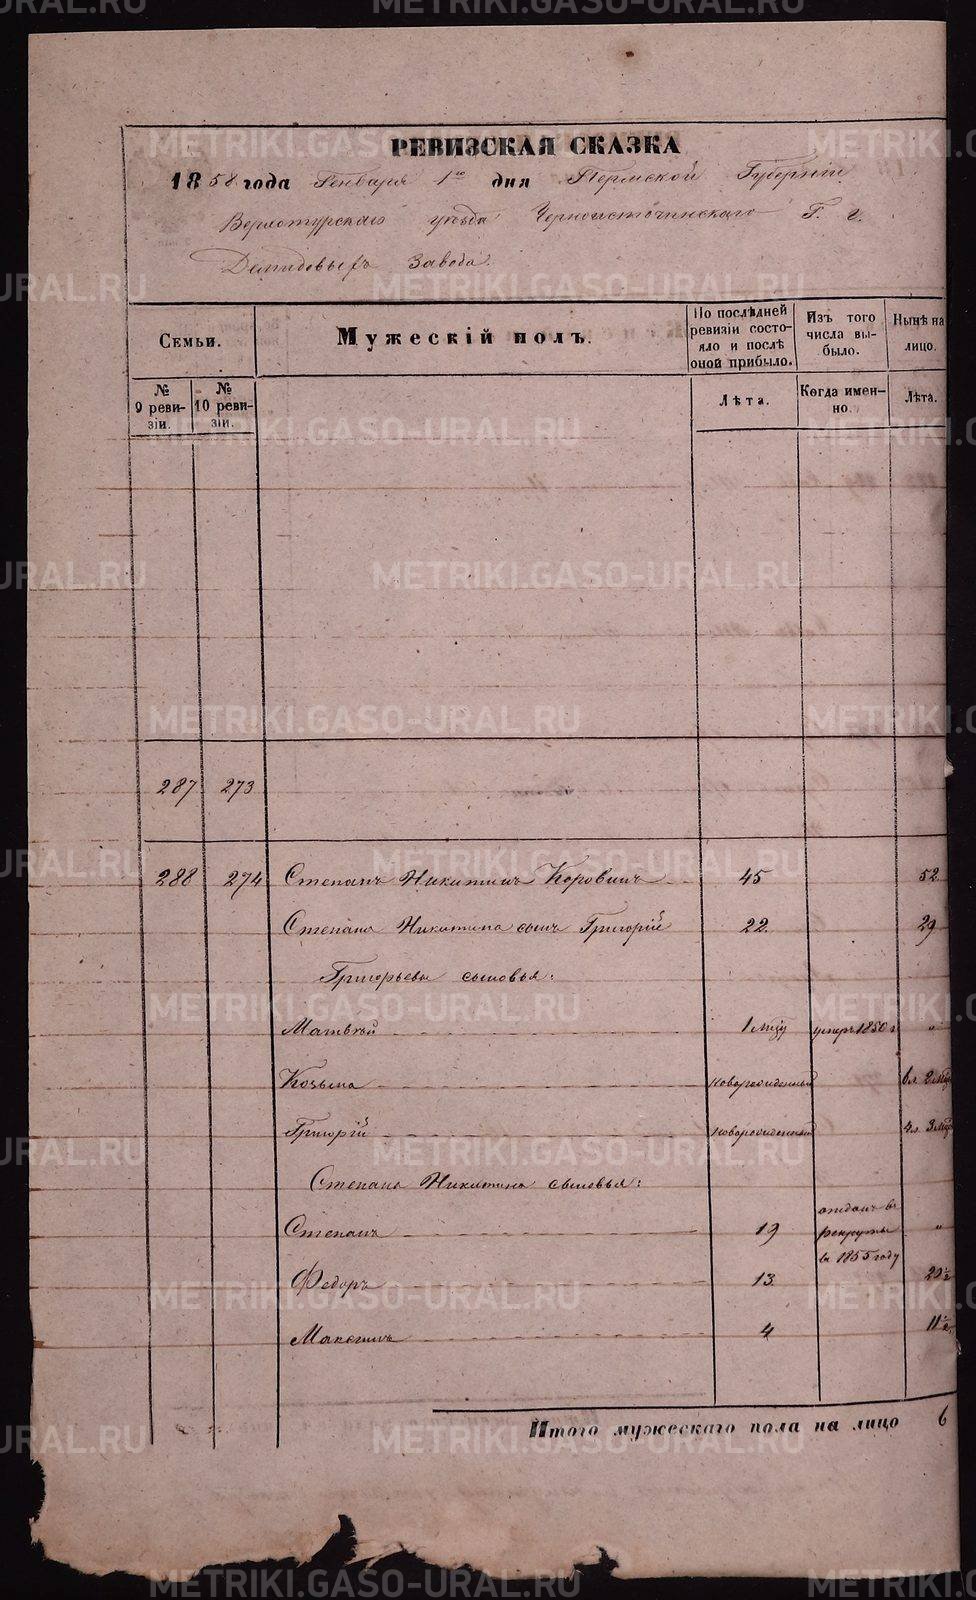 РЕВИЗСКАЯ СКАЗКА
1858 года Генваря 1го дня Пермской Губерніи
Верхотурскаго уѣзда Черноисточинскаго Г. г.
Демидовыхъ Завода.
Семьи.
Мужескій полъ.
По послѣдней ревизіи состояло и послѣ оной прибыло.
Изъ того числа выбыло.
Нынѣ на лицо.
№ 9 ревизіи.
№ 10 ревизіи.
Лѣта.
Когда именно.
Лѣта.
287 273
288 274 Степанъ Никитинъ Коровинъ 45 52
Степана Никитина сынъ Григорій 22 29
Григорьевы сыновья:
Матвѣй 1 мцъ умеръ 1850 г "
Козьма новорожденный 6 л 2 мцъ
Григорій новорожденный 4 л. 3 мцъ
Степана Никитина сыновья:
Степанъ 19 отданъ въ рекруты въ 1855 году "
Федоръ 13 20 1/2
Максимъ 4 11 1/2
Итого мужескаго пола на лицо 6
METRIKI.GASO-URAL.RU